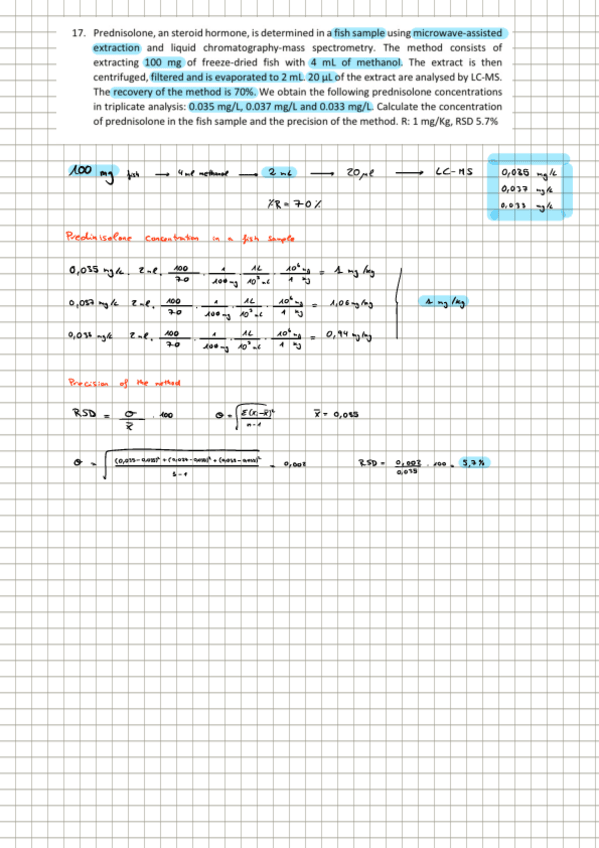 17. Prednisolone, an steroid hormone, is determined in a fish sample using microwave-assisted
extraction and liquid chromatography-mass spectrometry. The method consists of
extracting 100 mg of freeze-dried fish with 4 mL of methanol. The extract is then
centrifuged, filtered and is evaporated to 2 mL. 20 µL of the extract are analysed by LC-MS.
The recovery of the method is 70%. We obtain the following prednisolone concentrations
in triplicate analysis: 0.035 mg/L, 0.037 mg/L and 0.033 mg/L. Calculate the concentration
of prednisolone in the fish sample and the precision of the method. R: 1 mg/Kg, RSD 5.7%
100 mg fish → 4 ml methanol → 2 mL → 20 µl → LC-MS 0,035 mg/L
0,037 mg/L
%R = 70% 0,033 mg/L
Prednisolone concentration in a fish sample
0,035 mg/L . 2 ml . 100/70 . 1/100 mg . 1L/10³ mL . 10⁶ mg/1 kg = 1 mg/kg
0,037 mg/L 2 ml . 100/70 . 1/100 mg . 1L/10³ mL . 10⁶ mg/1 kg = 1,06 mg/kg 1 mg/kg
mg/L 2 ml . 100/70 . 1/100 mg . 1L/10³ mL . 10⁶ mg/1 kg = 0,94 mg/kg
Precision of the method
RSD = σ/x̄ . 100 σ = √Σ(xᵢ-x̄)²/n-1 x̄ = 0,035
σ = √ = 0,002 RSD = 0,002/0,035 . 100 = 5,7%